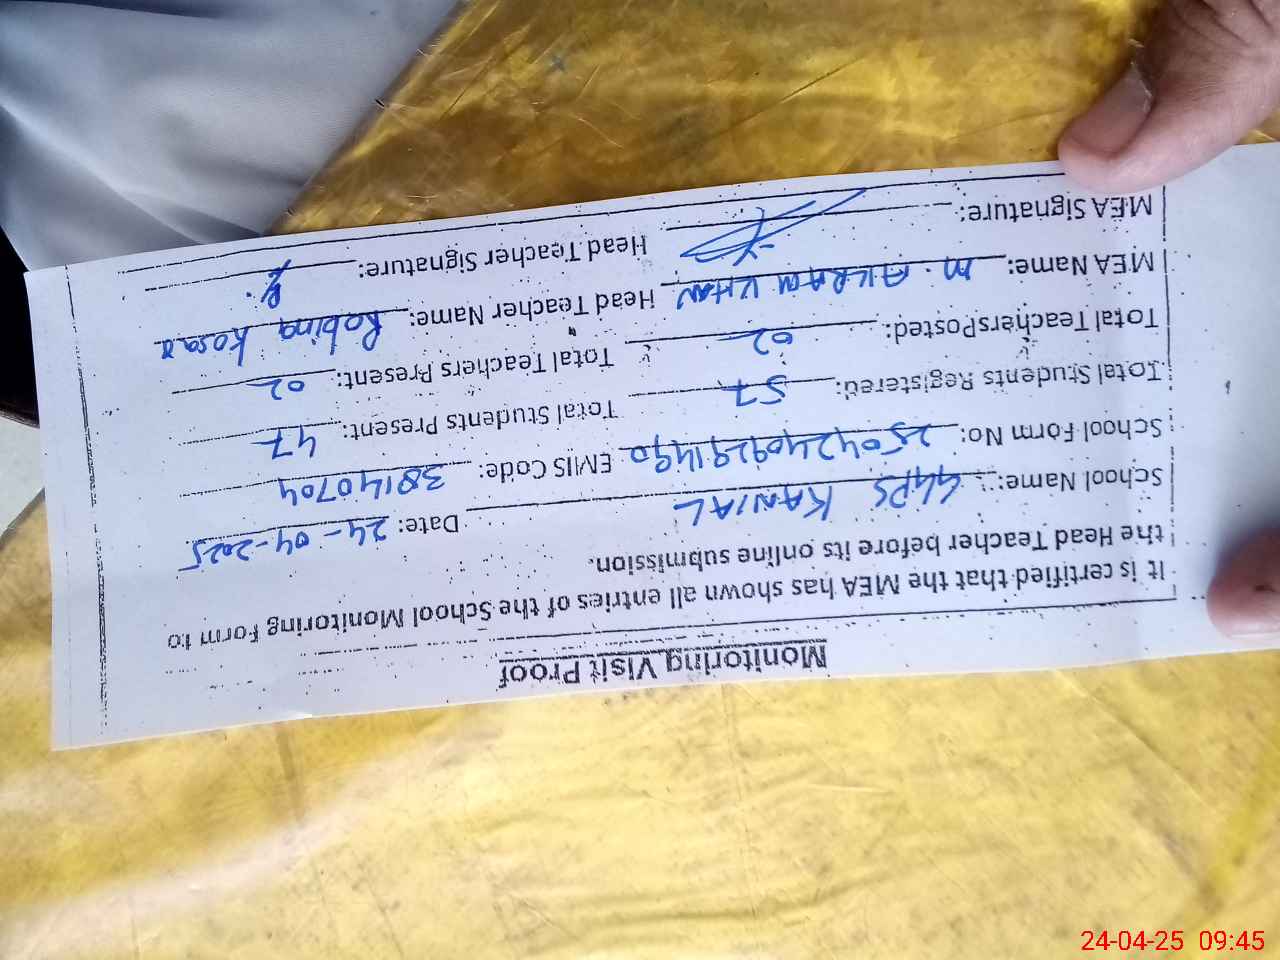 Monitoring Visit Proof
It is certified that the MEA has shown all entries of the School Monitoring Form to
the Head Teacher before its online submission.
School Name: GGPS KANIAL Date: 24-04-2025
School Form No: 250424092911490 EMIS Code: 38140704
Total Students Registered: 57 Total Students Present: 47
Total Teachers Posted: 02 Total Teachers Present: 02
MEA Name: M. AKRAM KHAN Head Teacher Name: Robina Kosar
MEA Signature: Head Teacher Signature:
24-04-25 09:45